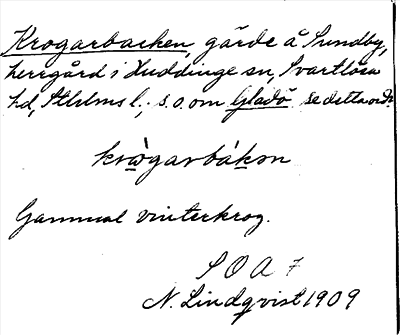 Krogarbacken, gärde å Sundby,
herrgård i Huddinge sn, Svartlösa
hd, Sthlms l., s.o. om Gladö se detta ord.
krògarbákən
Gammal vinterkrog.
S O A 7
N. Lindqvist 1909